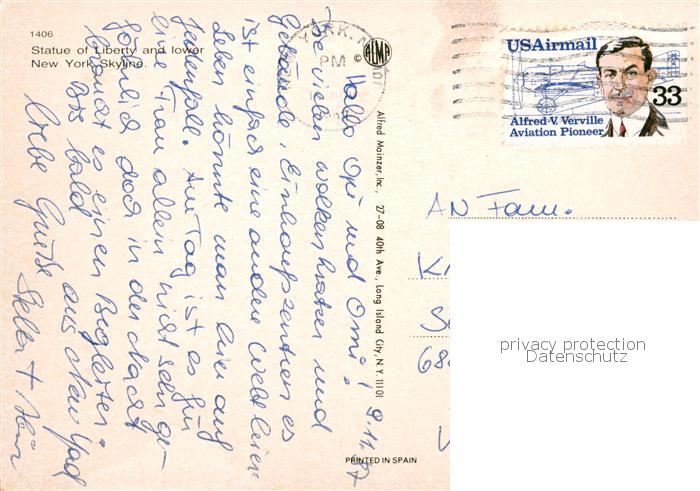 1406
Statue of Liberty and lower
New York Skyline.
YORK, N.
PM
© ALMA
USAirmail
33
Alfred V. Verville
Aviation Pioneer
Alfred Mainzer, Inc. 27-08 40th Ave., Long Island City, N.Y. 11101
PRINTED IN SPAIN
9.11.87
Hallo Opi und Omi!
Die vielen Wolkenkratzer und
Gebäude, Einkaufszentren es
ist einfach eine andere Welt hier
Leben könnte man hier auf
jedenfall. Am Tag ist es für
eine Frau allein nicht sehr ge-
fährlich doch in der Nacht
braucht es einen Begleiter.
Bis bald aus New York
Liebe Grüße
AN Fam.
K
S
68
privacy protection
Datenschutz